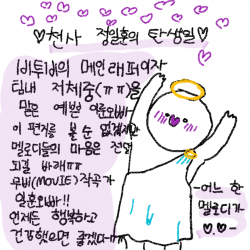 ♡천사 정일훈의 탄생일♡
비투비의 메인래퍼이자
팀내 저체중(ㅠㅠ)을
맡은 예쁜 일훈오빠
이 편지를 볼 순 없겠지만
멜로디들의 마음은 전달
되길 바래ㅠㅠ
무비(MOVIE)작곡가
일훈오빠!!
언제든 행복하고
건강했으면 좋겠다ㅠㅠ
-어느 한
멜로디가
♡.♡-